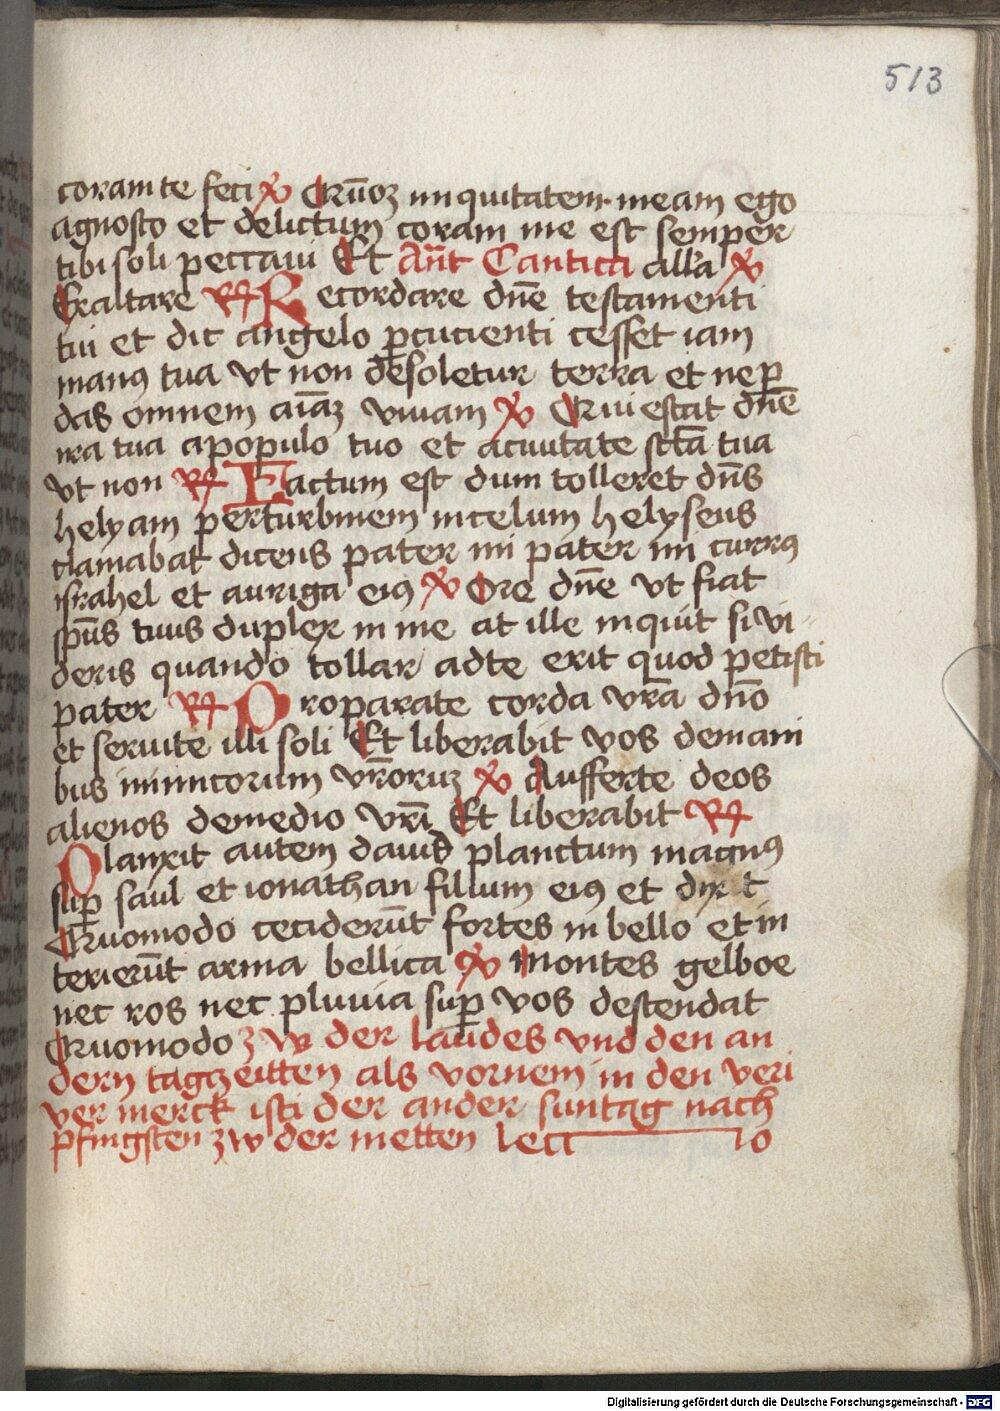 513
coram te feci ℣ Qm̄oꝫ iniquitatem meam ego
agnosco et delictum coram me est semper
tibi soli peccaui Et Añt Cantica all'a ℣
Exaltare ℟ Recordare dn̄e testamenti
tui et dic angelo ꝑcucienti cesset iam
manꝰ tua vt non desoletur terra et ne ꝑ
das omnem aīaꝫ viuam ℣ Quiescat dn̄e
ira tua a populo tuo et a ciuitate sc̄ta tua
vt non ℟ Factum est dum tolleret dn̄s
helyam per turbinem in celum helyseus
clamabat dicens pater mi pater mi currꝰ
israhel et auriga eiꝰ ℣ Ore dn̄e vt fiat
sp̄us tuus duplex in me at ille inquit si vi
deris quando tollar ad te erit quod petisti
pater ℟ Preparate corda vr̄a dn̄o
et seruite illi soli Et liberabit vos de mani
bus inimicorum vr̄oruꝫ ℣ Aufferte deos
alienos de medio vr̄i Et liberabit ℟
Planxit autem dauid planctum magnꝰ
suꝑ saul et ionathan filium eiꝰ et dyxit
Quomodo cecider̄ut fortes in bello et in
terier̄ut arma bellica ℣ Montes gelboe
nec ros nec pluuia suꝑ vos descendat
Quomodo zw der laudes vnd den an
dern tagczeitten als vornem in den veri
ver merck isti der ander suntag nach
pfingsten zw der metten lectio
Digitalisierung gefördert durch die Deutsche Forschungsgemeinschaft - DFG